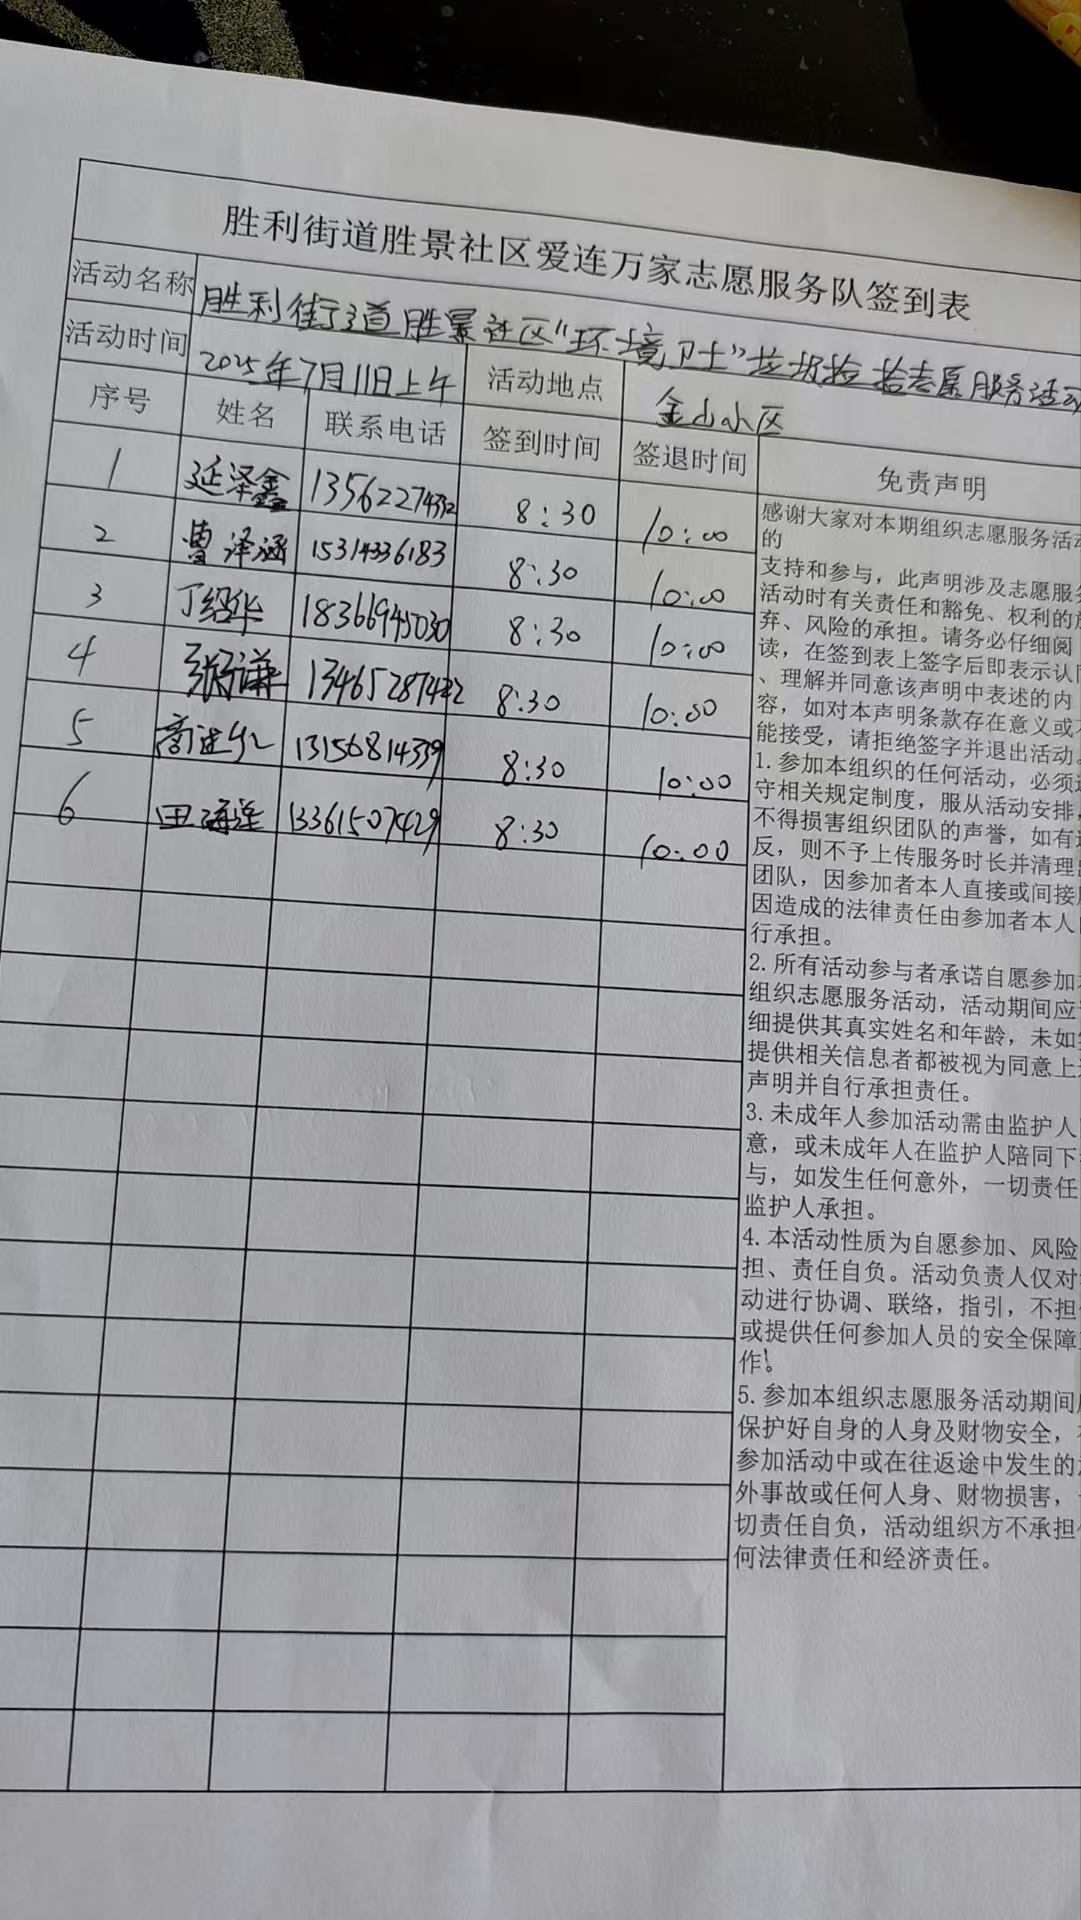 胜利街道胜景社区爱连万家志愿服务队签到表
活动名称 胜利街道胜景社区“环境卫士”垃圾捡拾志愿服务活动
活动时间 2025年7月11日上午 活动地点 金山小区
序号 姓名 联系电话 签到时间 签退时间 免责声明
1 延泽鑫 13562274332 8:30 10:00
2 曹泽涵 15314336183 8:30 10:00
3 丁绍华 18366945030 8:30 10:00
4 8:30 10:00
5 13156814339 8:30 10:00
6 田海莲 13361507429 8:30 10:00
感谢大家对本期组织志愿服务活动
的
支持和参与，此声明涉及志愿服务
活动时有关责任和豁免、权利的放
弃、风险的承担。请务必仔细阅
读，在签到表上签字后即表示认同
、理解并同意该声明中表述的内
容，如对本声明条款存在意义或不
能接受，请拒绝签字并退出活动。
1.参加本组织的任何活动，必须遵
守相关规定制度，服从活动安排，
不得损害组织团队的声誉，如有违
反，则不予上传服务时长并清理出
团队，因参加者本人直接或间接原
因造成的法律责任由参加者本人自
行承担。
2.所有活动参与者承诺自愿参加本
组织志愿服务活动，活动期间应详
细提供其真实姓名和年龄，未如实
提供相关信息者都被视为同意上述
声明并自行承担责任。
3.未成年人参加活动需由监护人
意，或未成年人在监护人陪同下参
与，如发生任何意外，一切责任
监护人承担。
4.本活动性质为自愿参加、风险
担、责任自负。活动负责人仅对活
动进行协调、联络，指引，不担任
或提供任何参加人员的安全保障工
作。
5.参加本组织志愿服务活动期间应
保护好自身的人身及财物安全，在
参加活动中或在往返途中发生的意
外事故或任何人身、财物损害，一
切责任自负，活动组织方不承担任
何法律责任和经济责任。